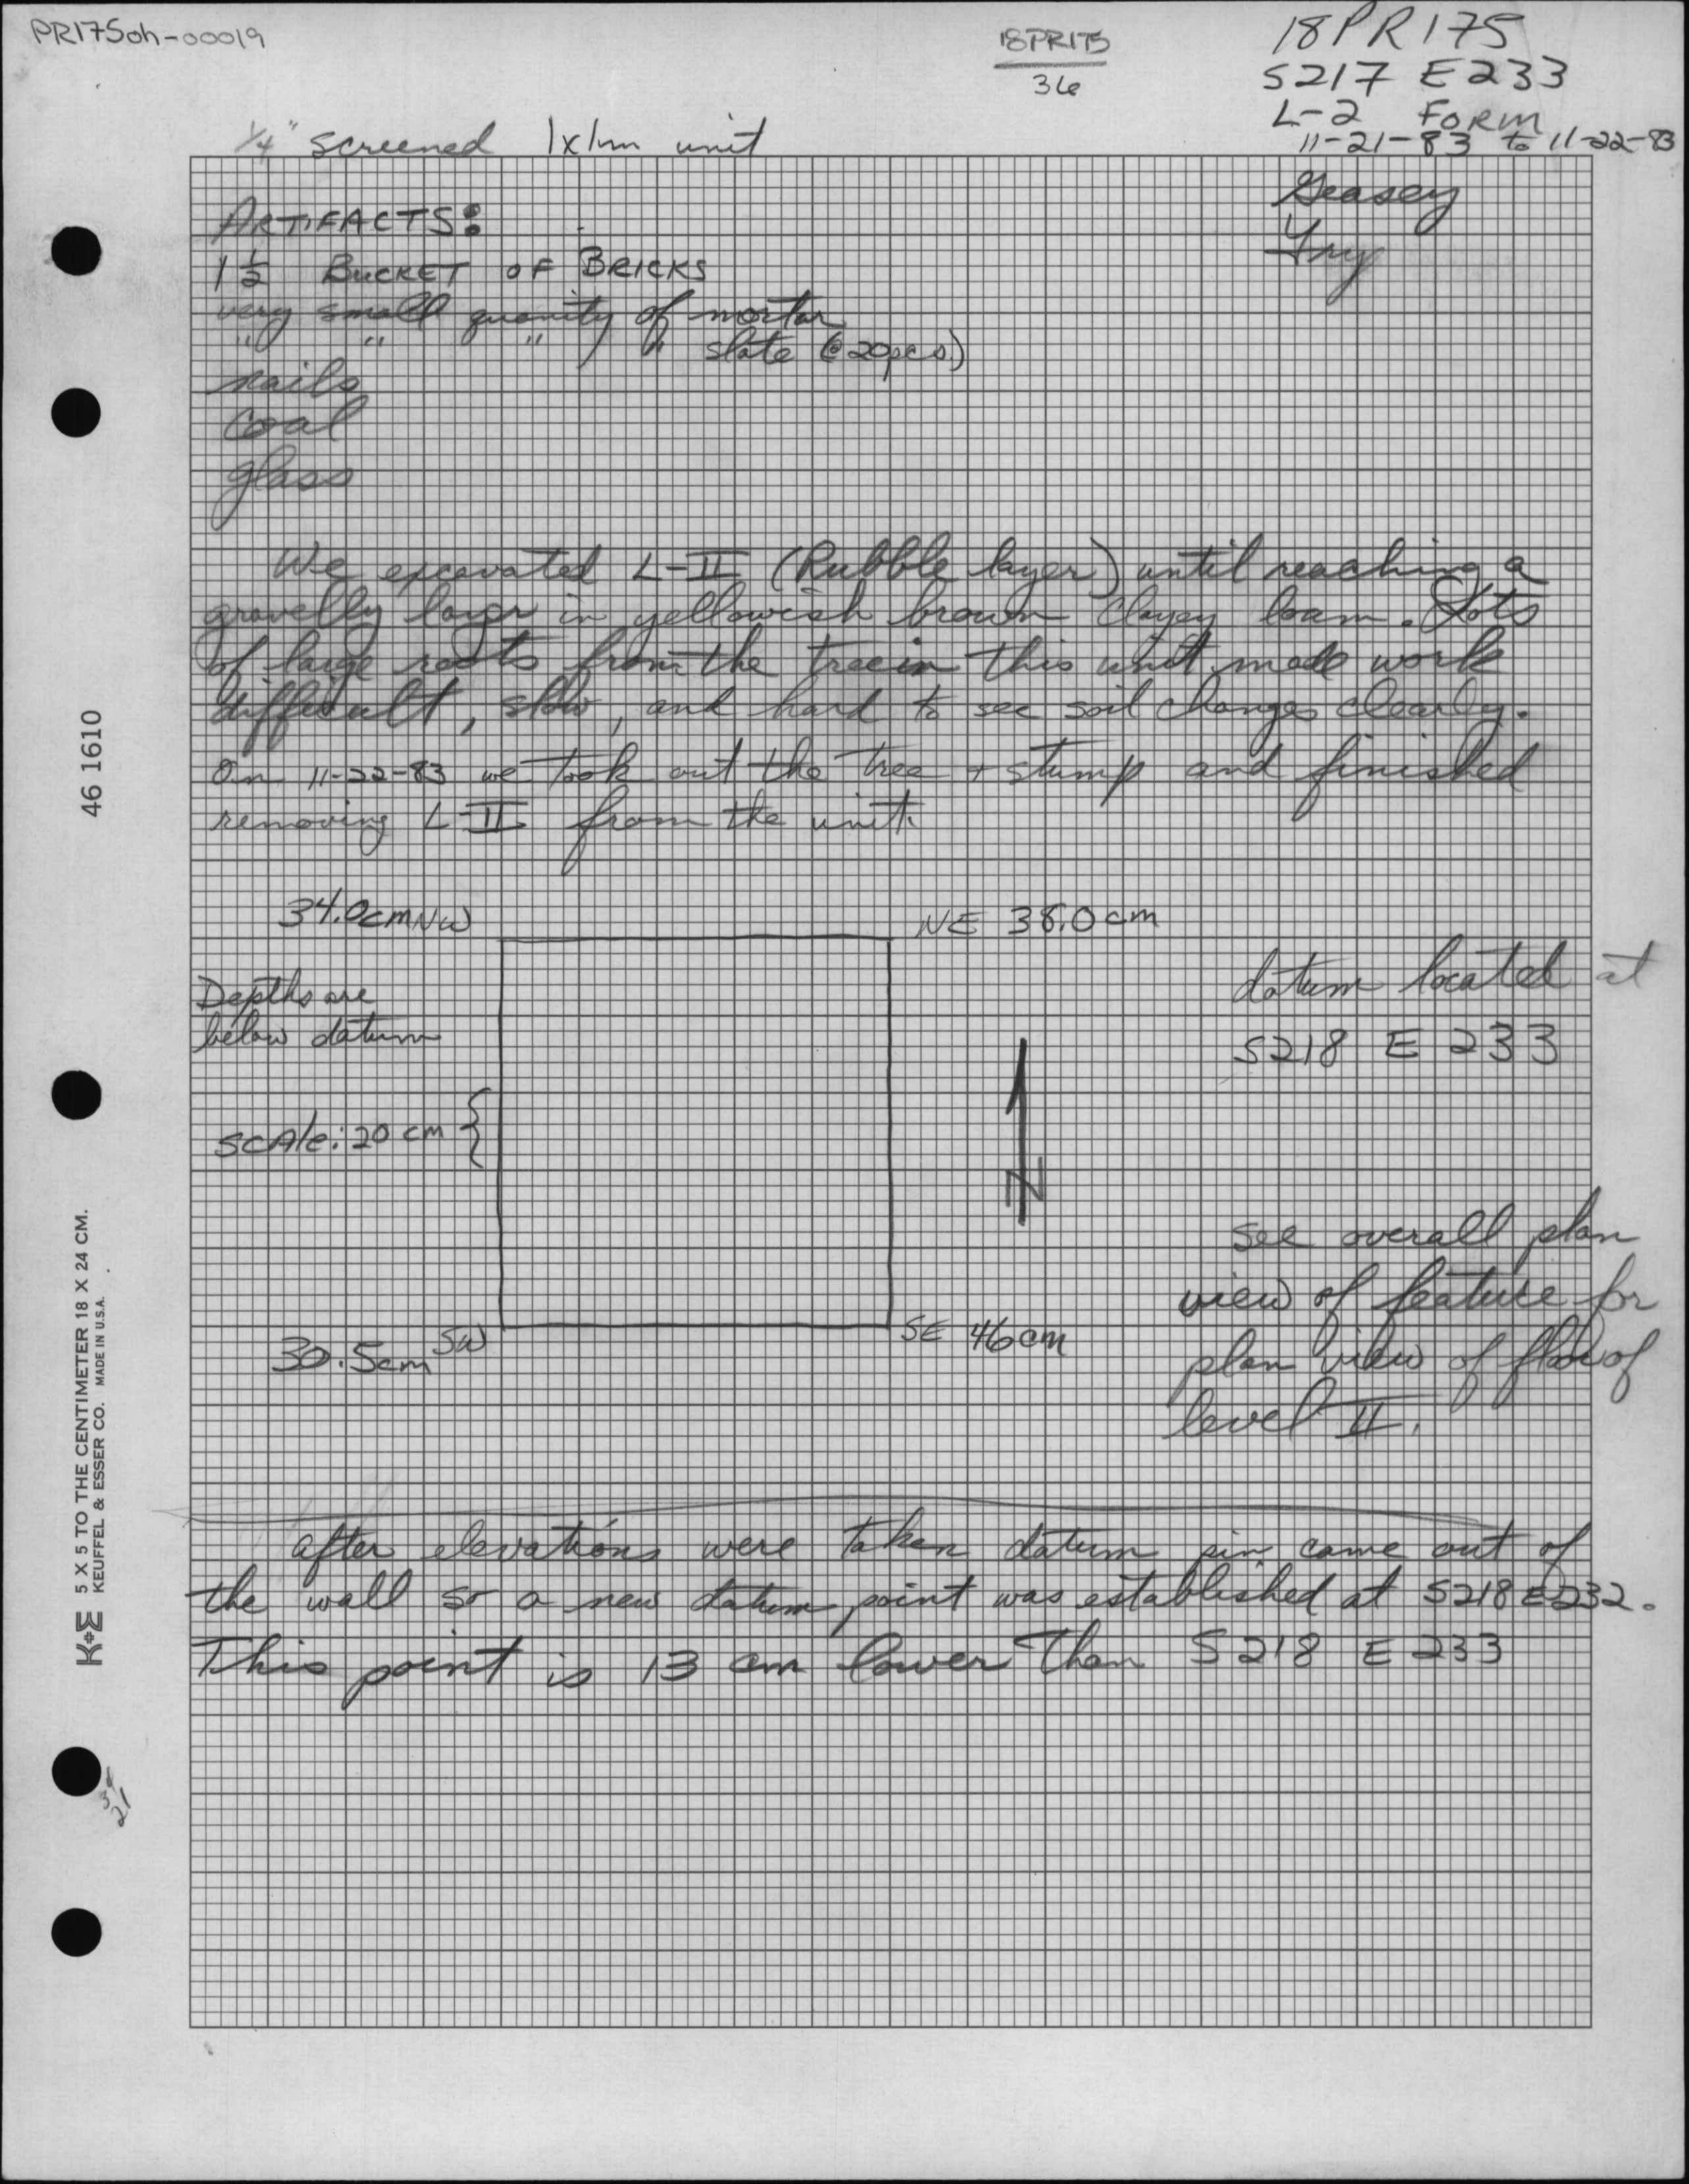 PR175oh-00019
18PR175
36
18PR175
S217 E233
L-2 FORM
11-21-83 to 11-22-83
1/4" screened 1x1m unit
Geasey
Fry
ARTIFACTS:
1 1/2 BUCKET OF BRICKS
very small quanity of mortar
" " " " slate (@ 20pcs.)
nails
coal
glass
We excavated L-II (Rubble layer) until reaching a
gravelly layer in yellowish brown clayey loam. Lots
of large roots from the tree in this unit made work
difficult, slow, and hard to see soil changes clearly.
On 11-22-83 we took out the tree + stump and finished
removing L-II from the unit.
34.0cm NW
NE 38.0 cm
Depths are
below datum
datum located at
S218 E 233
SCAle: 20 cm {
N
see overall plan
view of feature for
plan view of floor of
level II.
30.5cm SW
SE 46cm
after elevations were taken datum pin came out of
the wall so a new datum point was established at S218 E232.
This point is 13 cm lower than S218 E 233
46 1610
K+E 5 X 5 TO THE CENTIMETER 18 X 24 CM.
KEUFFEL & ESSER CO. MADE IN U.S.A.